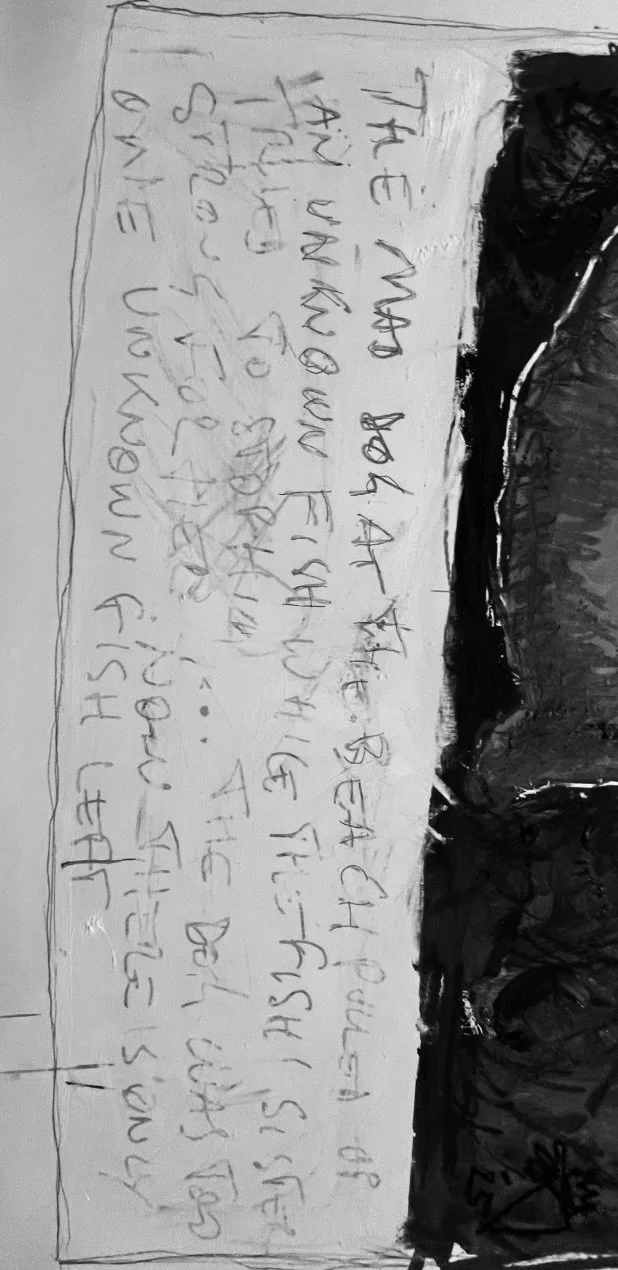 THE MAD DOG AT THE BEACH PULLED UP
AN UNKNOWN FISH WHILE THE FISH'S SISTER
TRIED TO STOP HIM THE DOG WAS TOO
STRONG FOR HER... NOW THERE IS ONLY
ONE UNKNOWN FISH LEFT